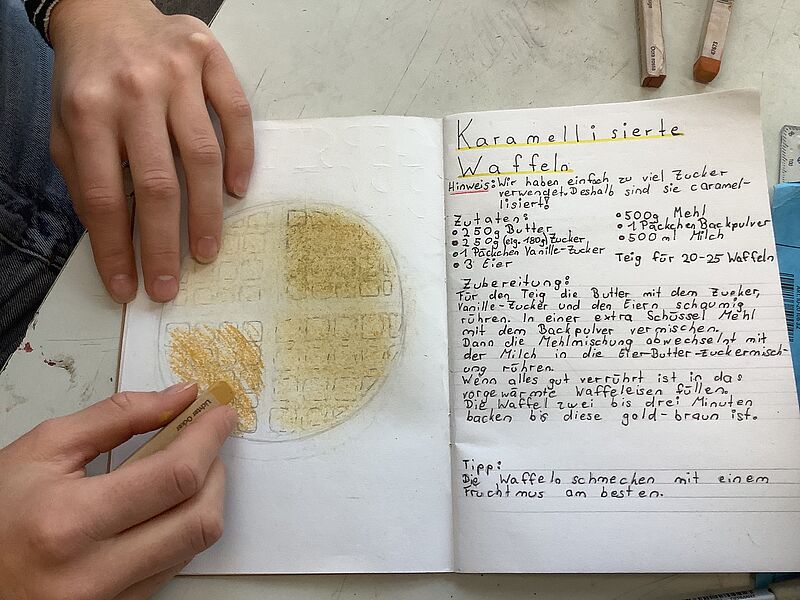 Karamellisierte
Waffeln
Hinweis: Wir haben einfach zu viel Zucker
verwendet. Deshalb sind sie caramel-
lisiert!
Zutaten:
• 250g Butter
• 250g (eig. 180g) Zucker
• 1 Päckchen Vanille-Zucker
• 3 Eier
• 500g Mehl
• 1 Päckchen Backpulver
• 500 ml Milch
Teig für 20-25 Waffeln
Zubereitung:
Für den Teig die Butter mit dem Zucker,
Vanille-Zucker und den Eiern schaumig
rühren. In einer extra Schüssel Mehl
mit dem Backpulver vermischen.
Dann die Mehlmischung abwechselnt mit
der Milch in die Eier-Butter-Zuckermisch-
ung rühren.
Wenn alles gut verrührt ist in das
vorgewärmte Waffeleisen füllen.
Die Waffel zwei bis drei Minuten
backen bis diese gold-braun ist.
Tipp:
Die Waffeln schmecken mit einem
Fruchtmus am besten.
Lichter Ocker